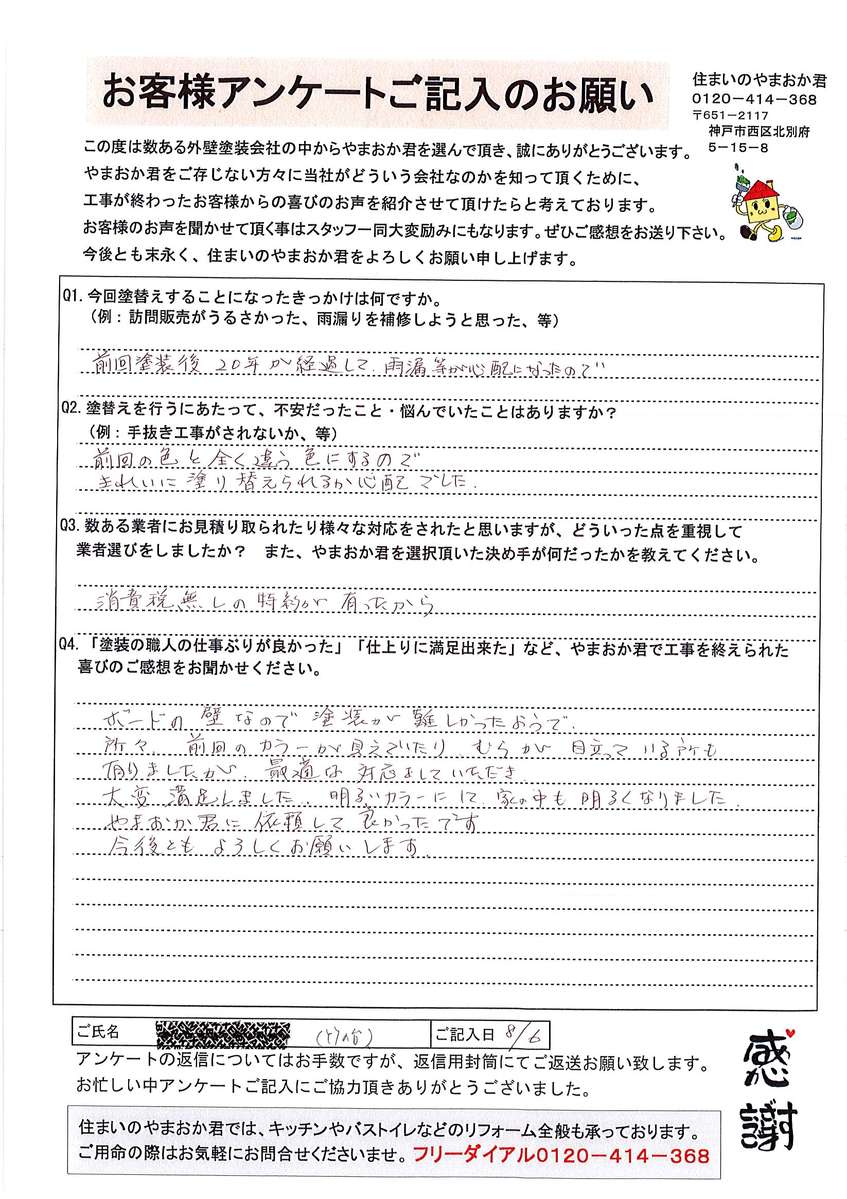 お客様アンケートご記入のお願い
住まいのやまおか君
0120-414-368
〒651-2117
神戸市西区北別府
5-15-8
この度は数ある外壁塗装会社の中からやまおか君を選んで頂き、誠にありがとうございます。
やまおか君をご存じない方々に当社がどういう会社なのかを知って頂くために、
工事が終わったお客様からの喜びのお声を紹介させて頂けたらと考えております。
お客様のお声を聞かせて頂く事はスタッフ一同大変励みにもなります。ぜひご感想をお送り下さい。
今後とも末永く、住まいのやまおか君をよろしくお願い申し上げます。
Q1. 今回塗替えすることになったきっかけは何ですか。
(例:訪問販売がうるさかった、雨漏りを補修しようと思った、等)
前回塗装後 20年が経過して、雨漏等が心配になったので
Q2. 塗替えを行うにあたって、不安だったこと・悩んでいたことはありますか?
(例:手抜き工事がされないか、等)
前回の色と全く違う色にするので
きれいに塗り替えられるか心配でした.
Q3. 数ある業者にお見積り取られたり様々な対応をされたと思いますが、どういった点を重視して
業者選びをしましたか? また、やまおか君を選択頂いた決め手が何だったかを教えてください。
消費税無しの特約が有ったから
Q4. 「塗装の職人の仕事ぶりが良かった」「仕上りに満足出来た」など、やまおか君で工事を終えられた
喜びのご感想をお聞かせください。
ボードの壁なので塗装が難しかったようで.
所々 前回のカラーが見えていたり むらが目立っている所も
有りましたが 最適な対応をしていただき
大変満足しました. 明るいカラーにして 家の中も明るくなりました.
やまおか君に依頼して良かったです
今後ともよろしくお願いします.
ご氏名
ご記入日 8/6
アンケートの返信についてはお手数ですが、返信用封筒にてご返送お願い致します。
お忙しい中アンケートご記入にご協力頂きありがとうございました。
感謝
住まいのやまおか君では、キッチンやバストイレなどのリフォーム全般も承っております。
ご用命の際はお気軽にお問合せくださいませ。フリーダイアル0120-414-368